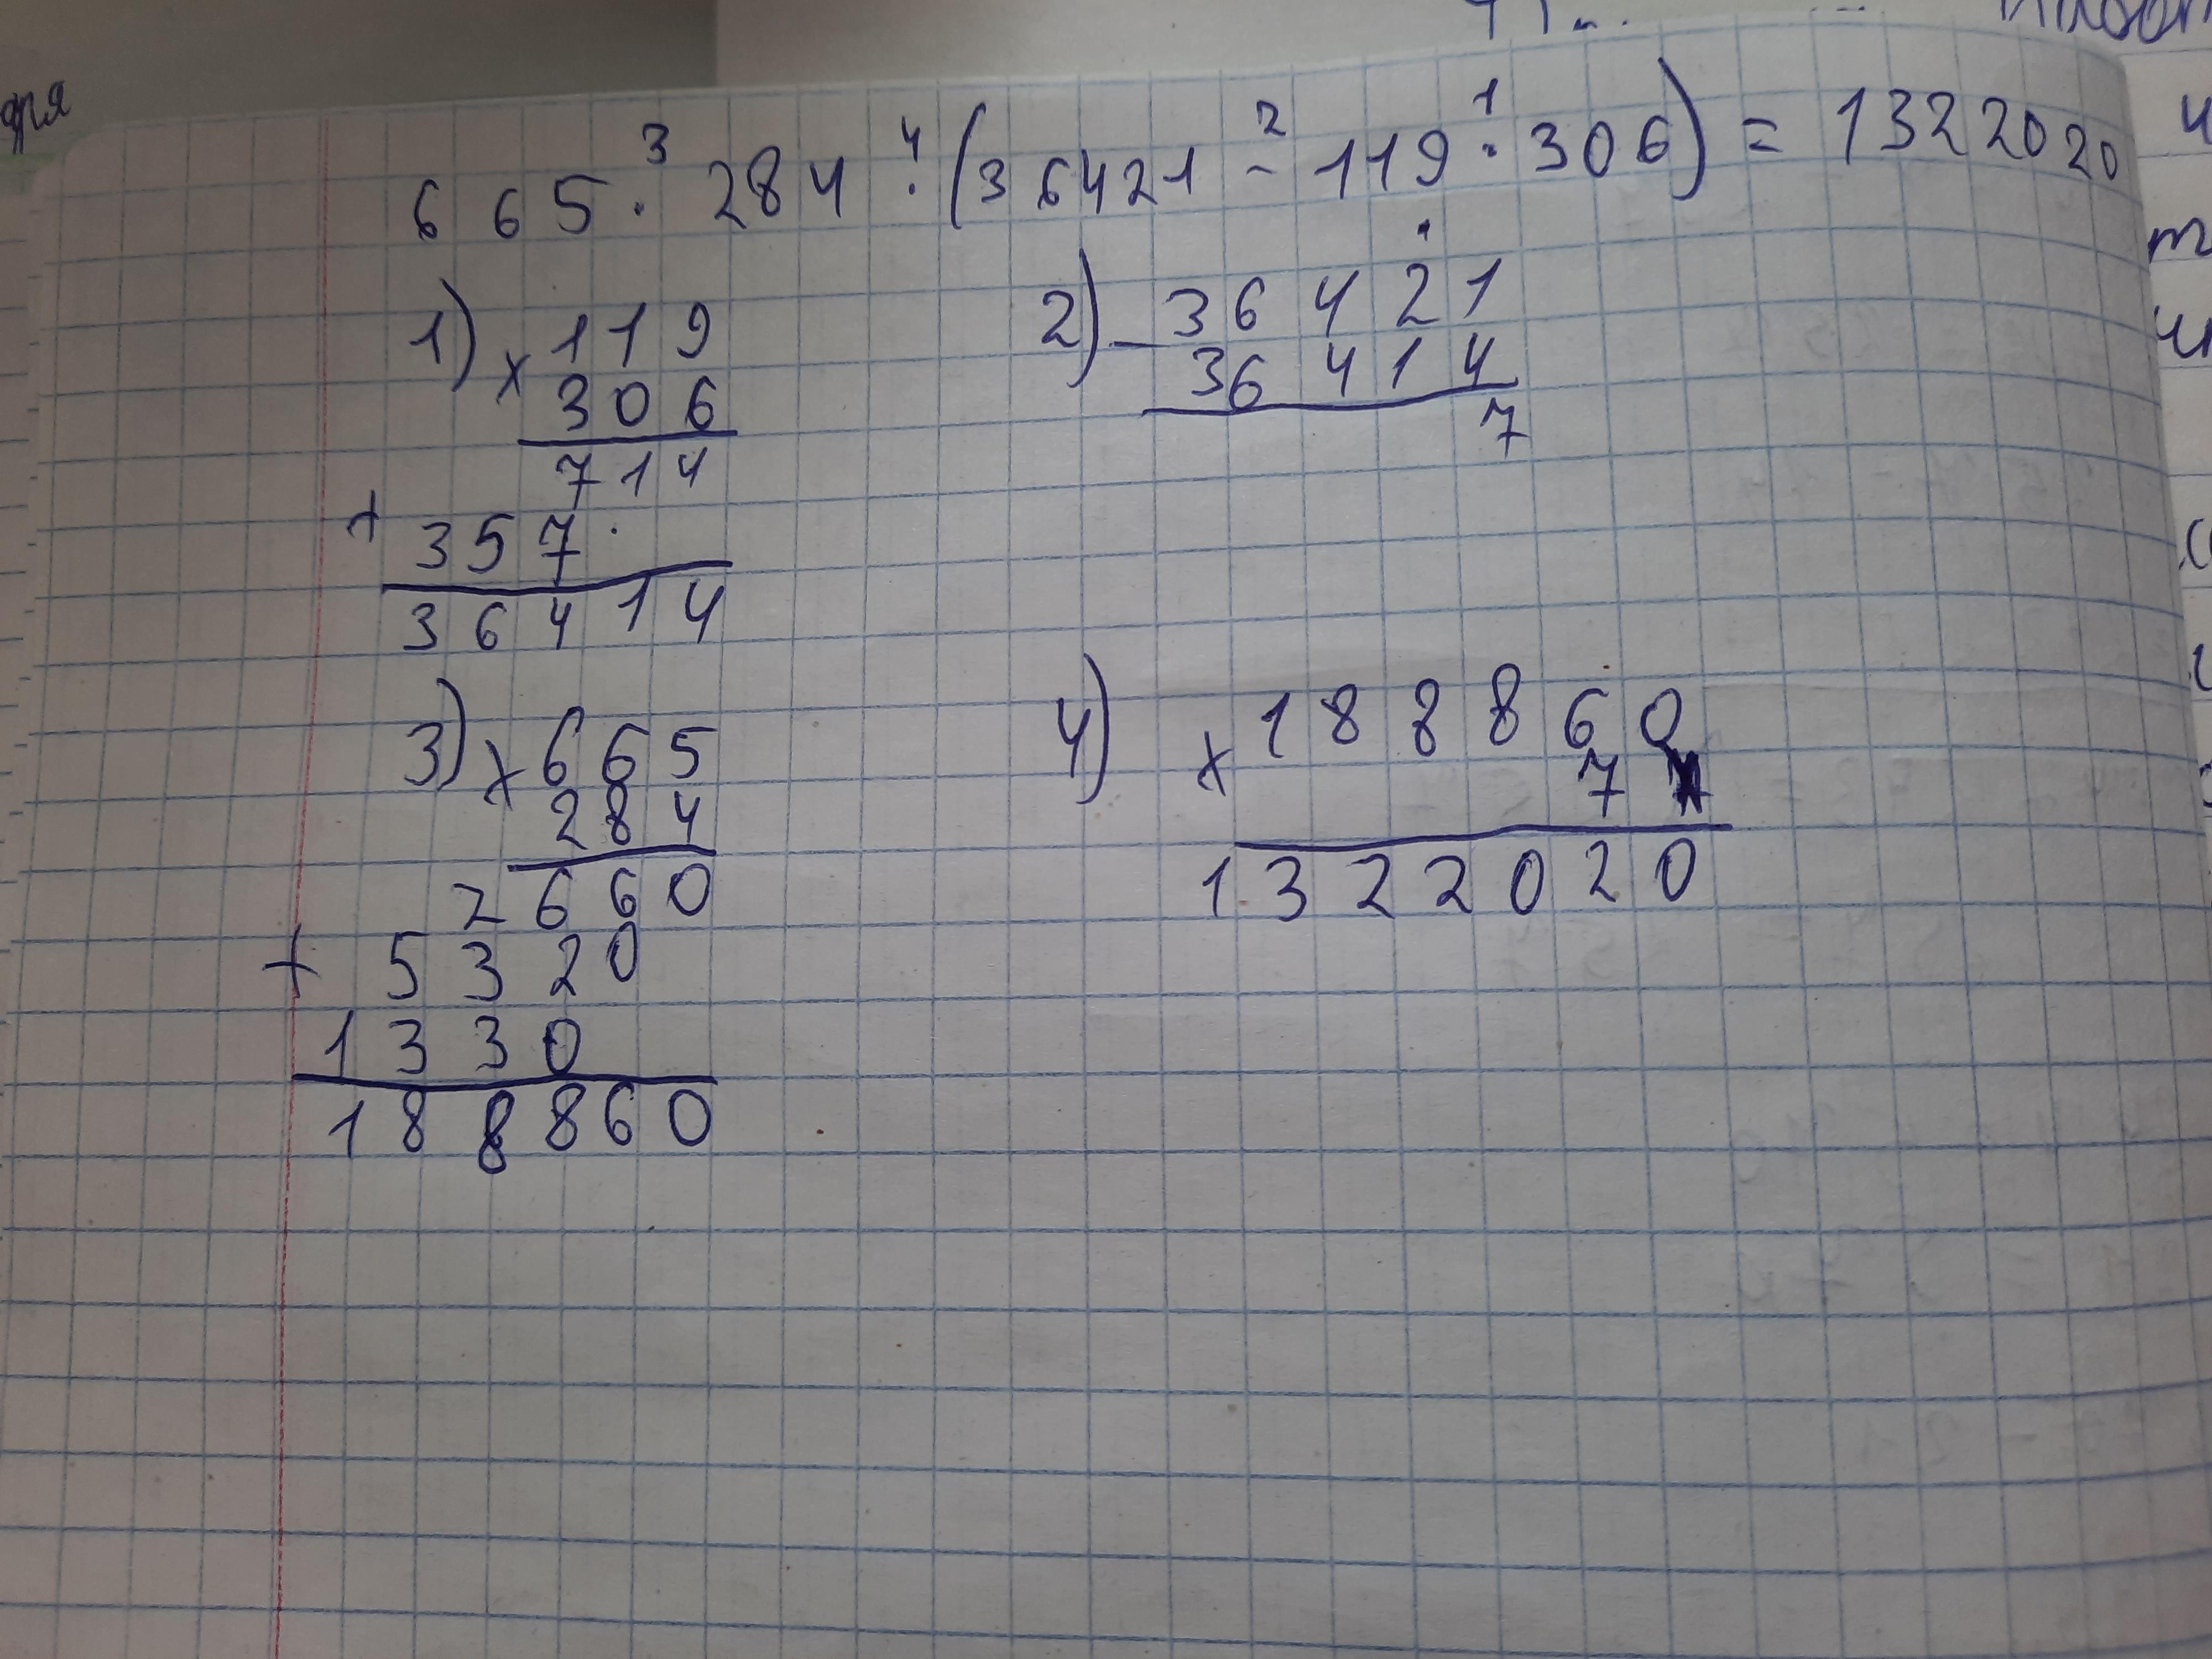 ря
3 4 2 1
665 · 284 · (36421 - 119 · 306) = 1322020
1) × 119
306
714
+ 357 ·
36414
2) - 36421
36414
7
3) × 665
284
2660
+ 5320
1330
188860
4) × 188860
7
1322020